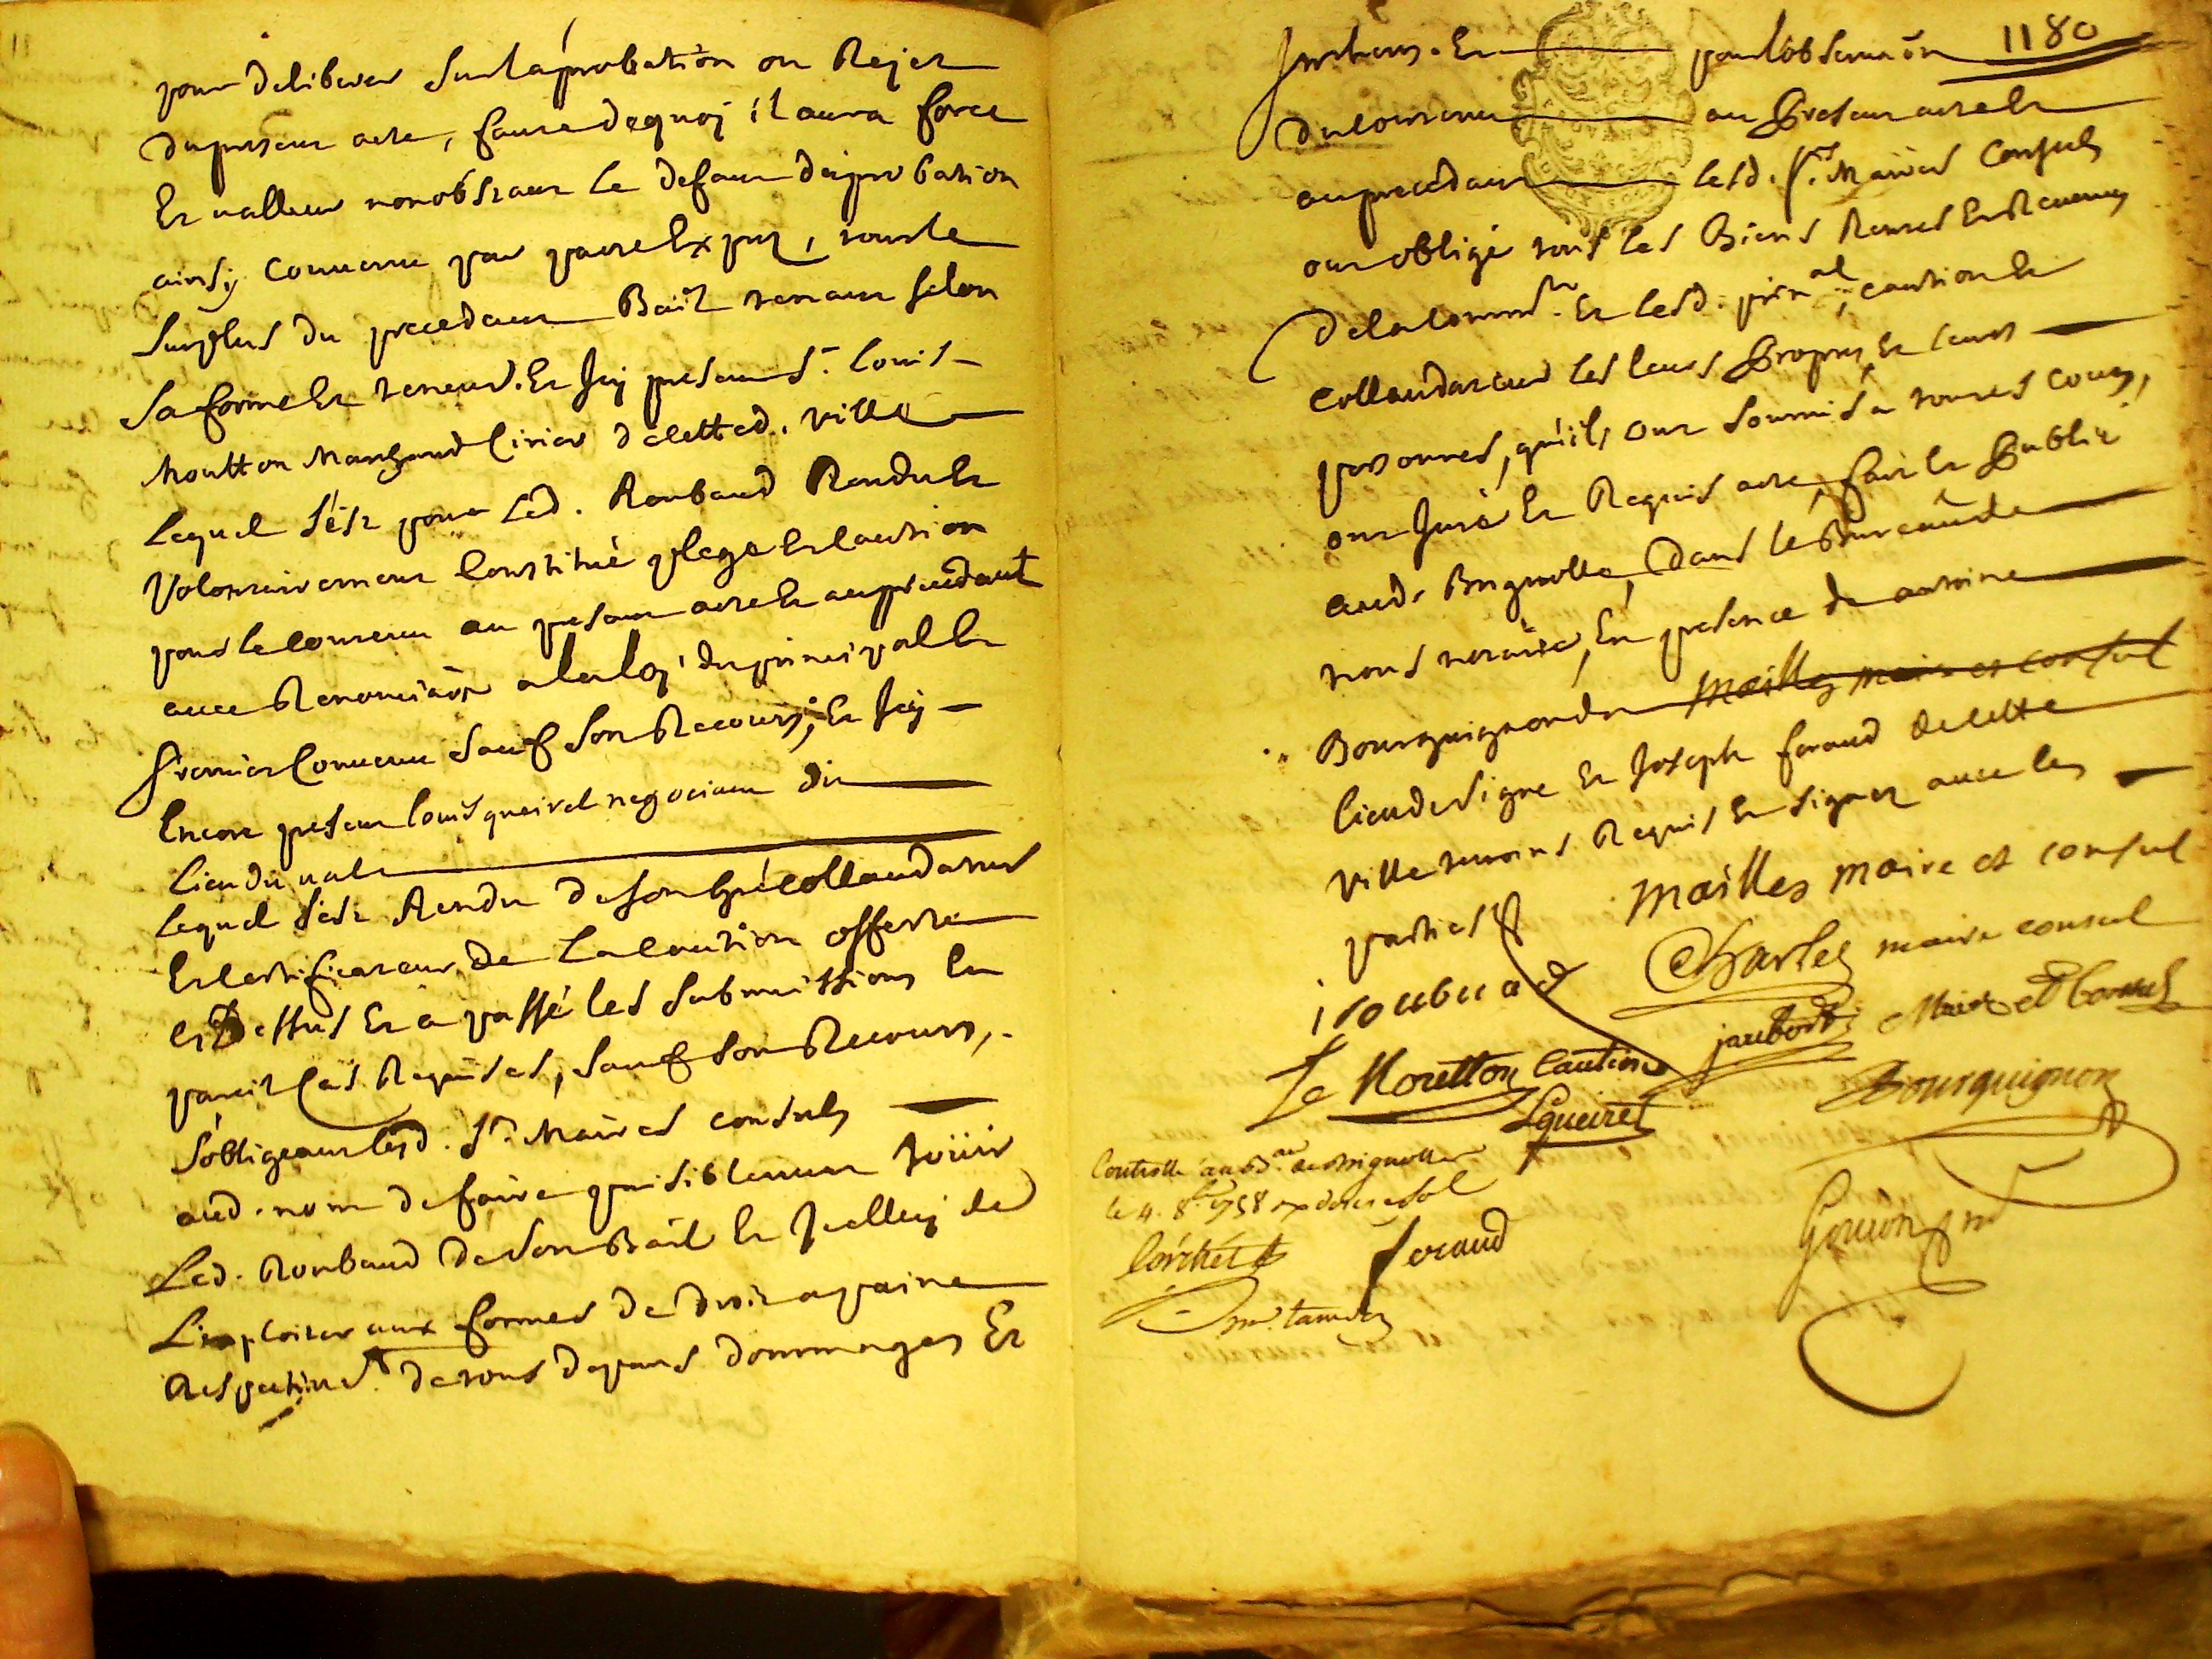 pour deliberer sur laprobation ou Rejet
du present acte, faute dequoy il aura force
Et valleur nonobstant le defaut daprobation
ainsy convenu par pacte Expres, tout le
surplus du precedant Bail tenant selon
sa forme Et teneur. Et Icy present Sr. Louis
Moutton Marchand Cirier de cette d. ville
Lequel s'est pour Led. Roubaud Rendu Et
Volontairement Constitué plege Et Caution
pour le contenu au present acte Et au precedant
avec Renonciaõn a la loy du principal Et
premier Convenu sauf son Recours; Et Icy
Encore present Louis queirel negociant du
Lieu du val
Lequel s'est Rendu de son gré collaudateur
Et Certificateur de La Caution offerte
cy Dessus Et a passé les submissions En
pareil Cas Requises, sauf son Recours,
s'obligeant lesd. Srs. Maires consuls
aud. nom de faire paisiblement Joüir
Led. Roubaud de son Bail Et Icelluy de
L'exploiter aux formes de droit a paine
Respective de tous depans dommages Et
1180
Interets. Et pour lobservaõn
du contenu au Present acte Et
au precedant lesd. Srs. Maires Consuls
ont obligé tous les Biens Rentes Et Revenus
de la Commté. Et lesd. prinal, caution Et
collaudateur les leurs Propres Et leurs
personnes, qu'ils ont soumis a toutes cours,
ont Juré Et Requis acte, fait Et Publié
aud. Brignolle, dans le Bureau de
nous notaire, En presence de antoine
Bourguignon du mailles maire et consul
lieu de Signe Et Joseph feraud de cette
ville temoins Requis Et signez avec les
parties
mailles maire et consul
Charles maire consul
iroubuad
jaubert Maire et Consul
Le Moutton Caution
Bourguignon
Lqueirel
Controllé au Bau. de Brignolle
le 4. 8bre 1758
feraud
Goujon